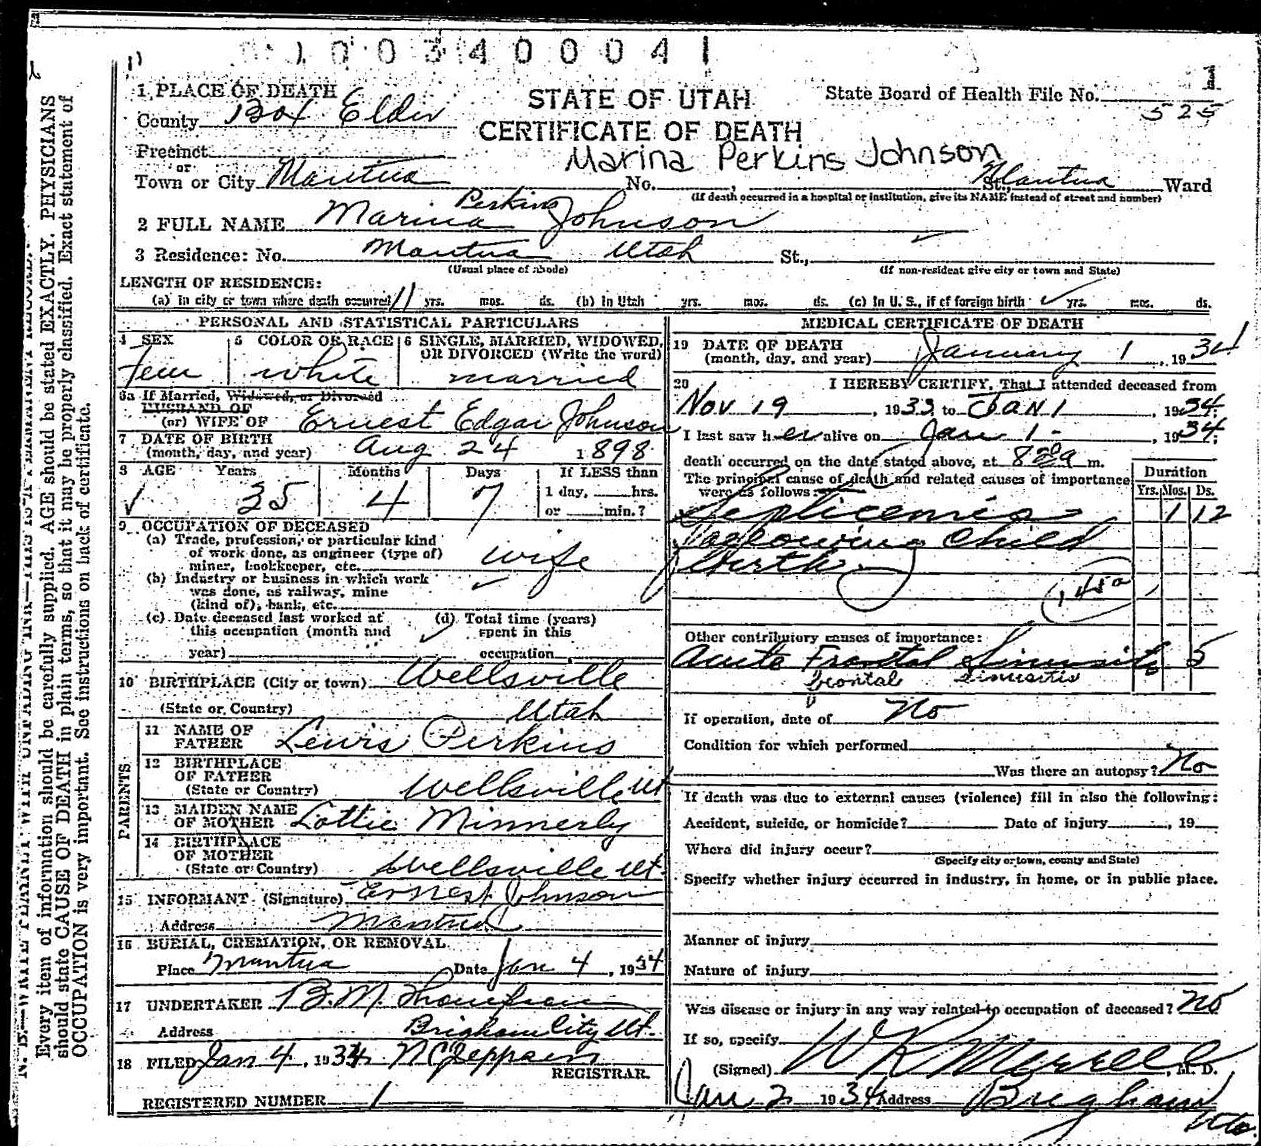 1003400041
1
1 PLACE OF DEATH
STATE OF UTAH
State Board of Health File No.
525
County Box Elder
CERTIFICATE OF DEATH
Precinct
or
Marina Perkins Johnson
Town or City Mantua No. , St., Mantua Ward
(If death occurred in a hospital or institution, give its NAME instead of street and number)
Perkins
2 FULL NAME Marina Johnson
3 Residence: No. Mantua Utah St.,
(Usual place of abode) (If non-resident give city or town and State)
LENGTH OF RESIDENCE:
(a) In city or town where death occurred 11 yrs. mos. ds. (b) In Utah yrs. mos. ds. (c) In U. S., if of foreign birth ✓ yrs. mos. ds.
PERSONAL AND STATISTICAL PARTICULARS
4 SEX 5 COLOR OR RACE 6 SINGLE, MARRIED, WIDOWED,
OR DIVORCED (Write the word)
Fem white married
6a If Married, Widowed, or Divorced
HUSBAND OF
(or) WIFE OF Ernest Edgar Johnson
7 DATE OF BIRTH
(month, day, and year) Aug 24 1898
8 AGE Years Months Days If LESS than
1 day, hrs.
35 4 7 or min.?
9 OCCUPATION OF DECEASED
(a) Trade, profession, or particular kind
of work done, as engineer (type of)
miner, bookkeeper, etc. wife
(b) Industry or business in which work
was done, as railway, mine
(kind of), bank, etc. ✓
(c) Date deceased last worked at
this occupation (month and
year)
(d) Total time (years)
spent in this
occupation
10 BIRTHPLACE (City or town) Wellsville
(State or Country) Utah
PARENTS
11 NAME OF
FATHER Lewis Perkins
12 BIRTHPLACE
OF FATHER
(State or Country) Wellsville Ut
13 MAIDEN NAME
OF MOTHER Lottie Minnerly
14 BIRTHPLACE
OF MOTHER
(State or Country) Wellsville Ut.
15 INFORMANT (Signature) Ernest Johnson
Address Mantua
16 BURIAL, CREMATION, OR REMOVAL
Place Mantua Date Jan 4, 1934
17 UNDERTAKER B. M. Thompson
Address Brigham City Ut.
18 FILED Jan 4, 1934 N C Jeppsen
REGISTRAR.
REGISTERED NUMBER 1
MEDICAL CERTIFICATE OF DEATH
19 DATE OF DEATH
(month, day, and year) January 1, 1934
20 I HEREBY CERTIFY, That I attended deceased from
Nov 19, 1933 to Jan 1, 1934;
I last saw her alive on Jan 1-, 1934;
death occurred on the date stated above, at m.
The principal cause of death and related causes of importance
were as follows:
Duration
Yrs. Mos. Ds.
Septicemia 1 12
Following Child
birth.
Other contributory causes of importance:
Acute Frontal Sinusitis 5
frontal sinusitis
If operation, date of No
Condition for which performed
Was there an autopsy? No
If death was due to external causes (violence) fill in also the following:
Accident, suicide, or homicide? Date of injury , 19
Where did injury occur?
(Specify city or town, county and State)
Specify whether injury occurred in industry, in home, or in public place.
Manner of injury
Nature of injury
Was disease or injury in any way related to occupation of deceased? No
If so, specify
(Signed) W K Merrell, M. D.
Jan 2 1934 Address Brigham
Utah
N. B.—WRITE PLAINLY WITH UNFADING INK—THIS IS A PERMANENT RECORD.
Every item of information should be carefully supplied. AGE should be stated EXACTLY. PHYSICIANS
should state CAUSE OF DEATH in plain terms, so that it may be properly classified. Exact statement of
OCCUPATION is very important. See instructions on back of certificate.